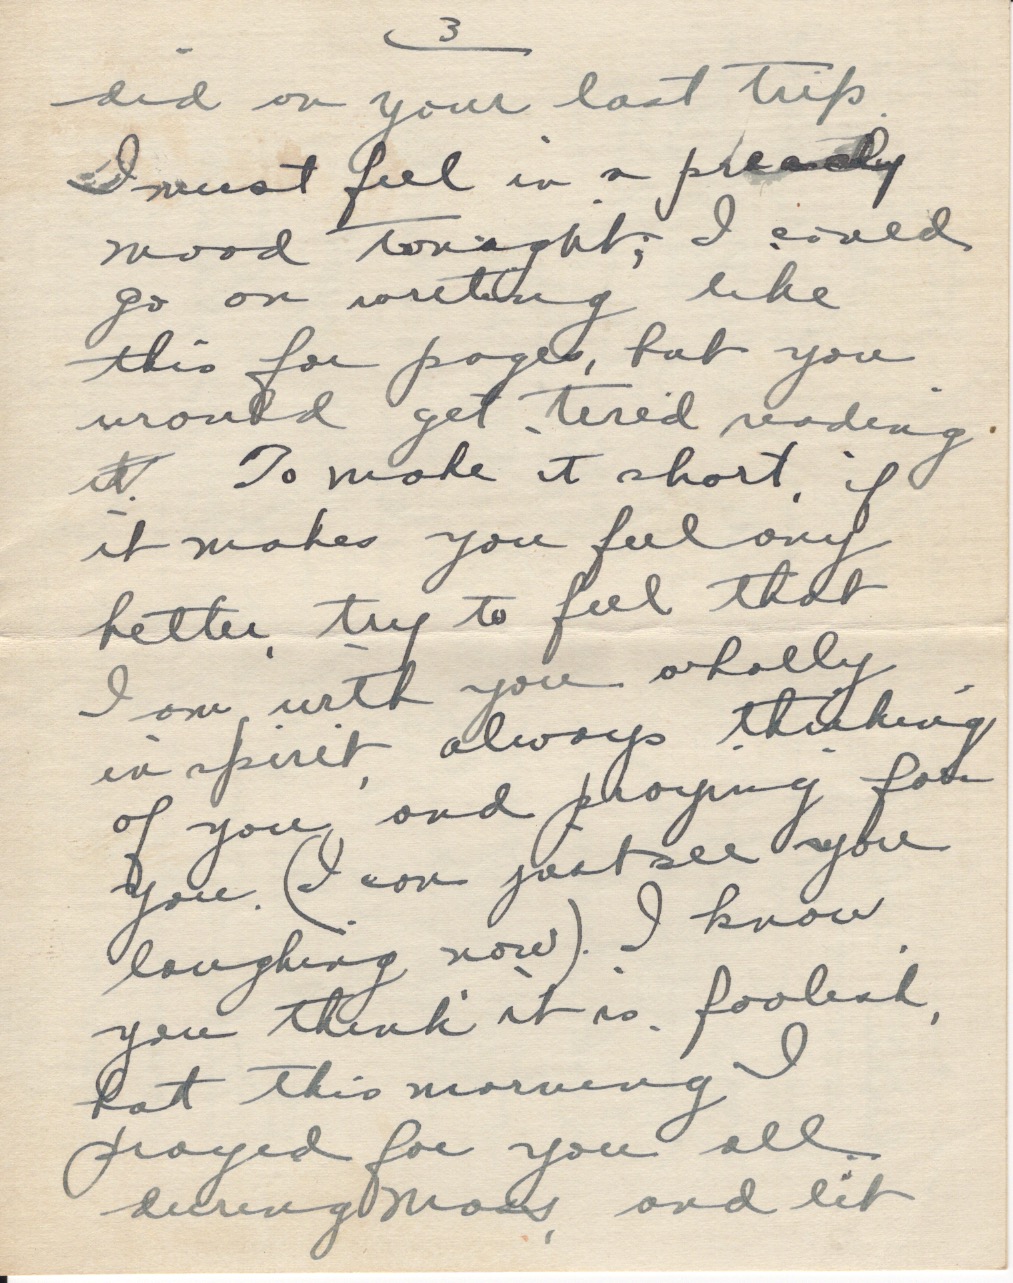 3
did on your last trip.
I must feel in a preachy
mood tonight; I could
go on writing like
this for pages, but you
would get tired reading
it. To make it short, if
it makes you feel any
better, try to feel that
I am with you wholly
in spirit, always thinking
of you, and praying for
you. (I can just see you
laughing now). I know
you think it is foolish,
but this morning I
prayed for you all
during Mass, and lit